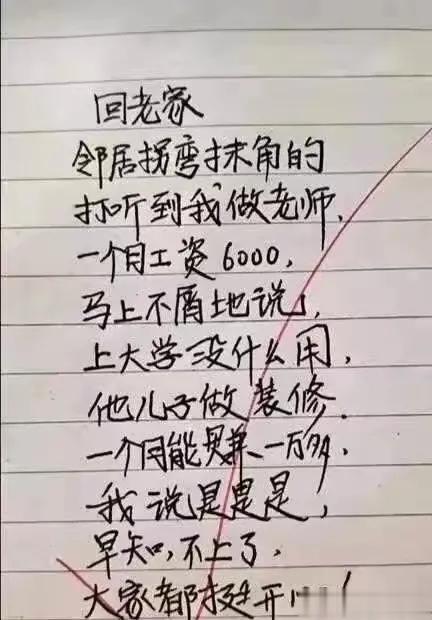 回老家
邻居拐弯抹角的
打听到我做老师，
一个月工资6000，
马上不屑地说，
上大学没什么用，
他儿子做装修，
一个月能赚一万多，
我说是是是，
早知，不上了，
大家都挺开